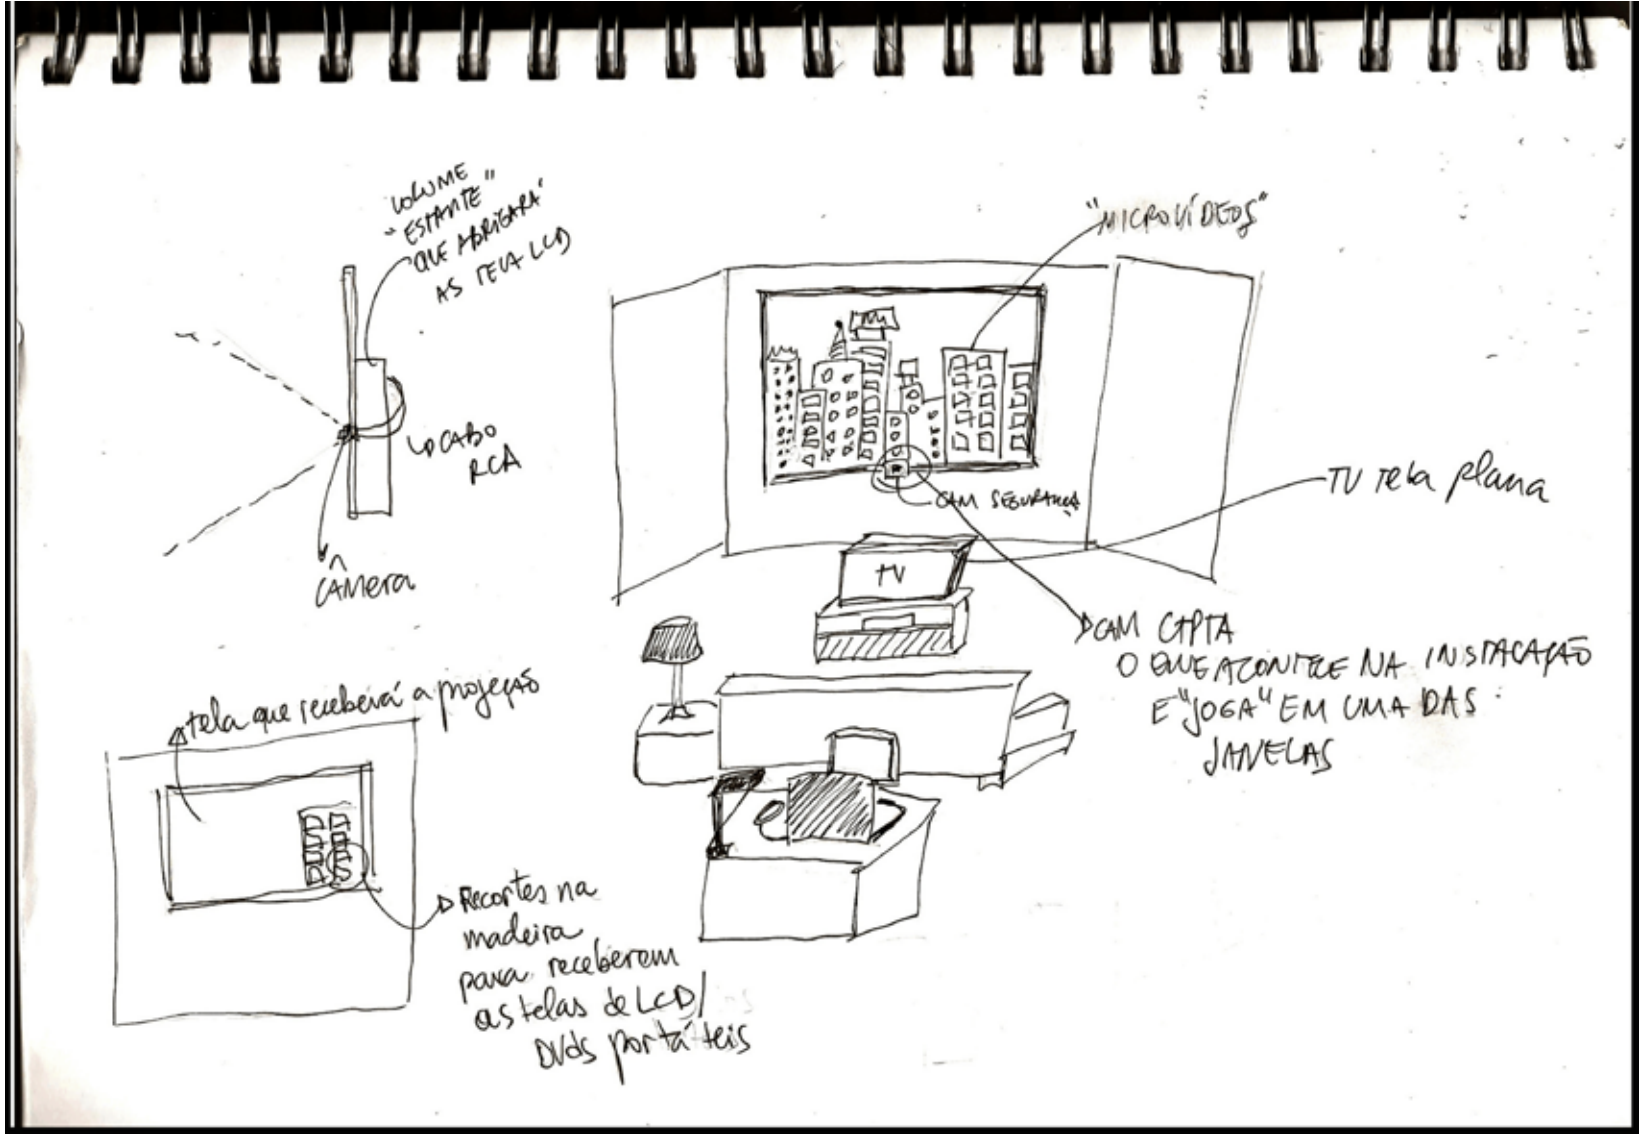 VOLUME
"ESTANTE"
QUE ABRIGARÁ
AS TELA LCD
CABO
RCA
CÂMERA
"MICROVÍDEOS"
CAM SEGURANÇA
TV tela plana
TV
CAM CAPTA
O QUE ACONTECE NA INSTALAÇÃO
E "JOGA" EM UMA DAS
JANELAS
tela que receberá a projeção
Recortes na
madeira
para receberem
as telas de LCD/
DVDs portáteis